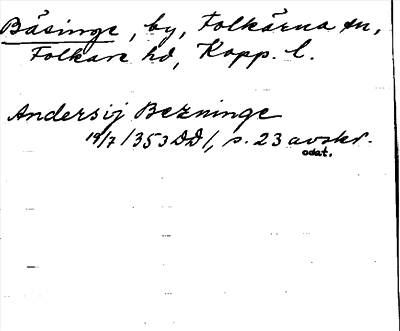 Bäsinge, by, Folkärna sn,
Folkare hd, Kopp. l.
Andersij Bezninge
19/7 1353 DD 1, s. 23 avskr.
odat.